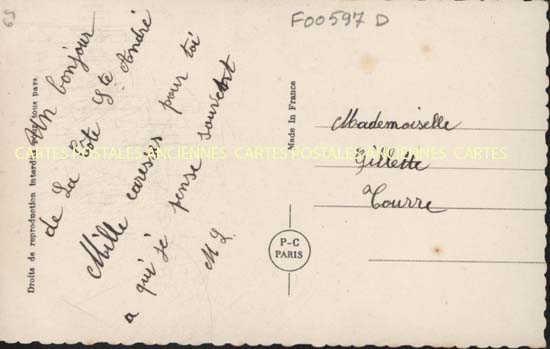 F00597 D
Un bonjour
de La Côte St André
Mille caresses pour toi
a qui je pense souvent
M L.
Droits de reproduction interdits pour tous pays.
Made in France
P-C
PARIS
Mademoiselle
Gillette
Tourre
CARTES POSTALES ANCIENNES CARTES POSTALES ANCIENNES CARTES